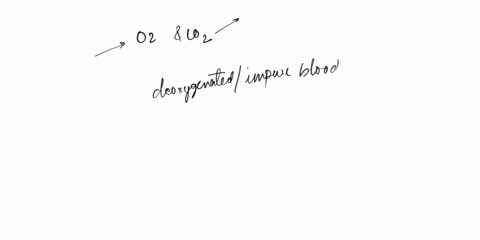 → O2 & CO2 →
deoxygenated/impure blood